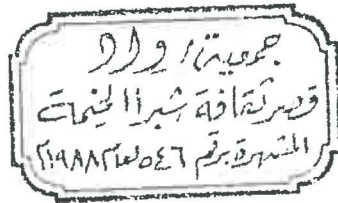 جمعية رواد
قصر ثقافة شبرا الخيمة
المشهرة برقم ٥٤٦ لعام ١٩٨٨م